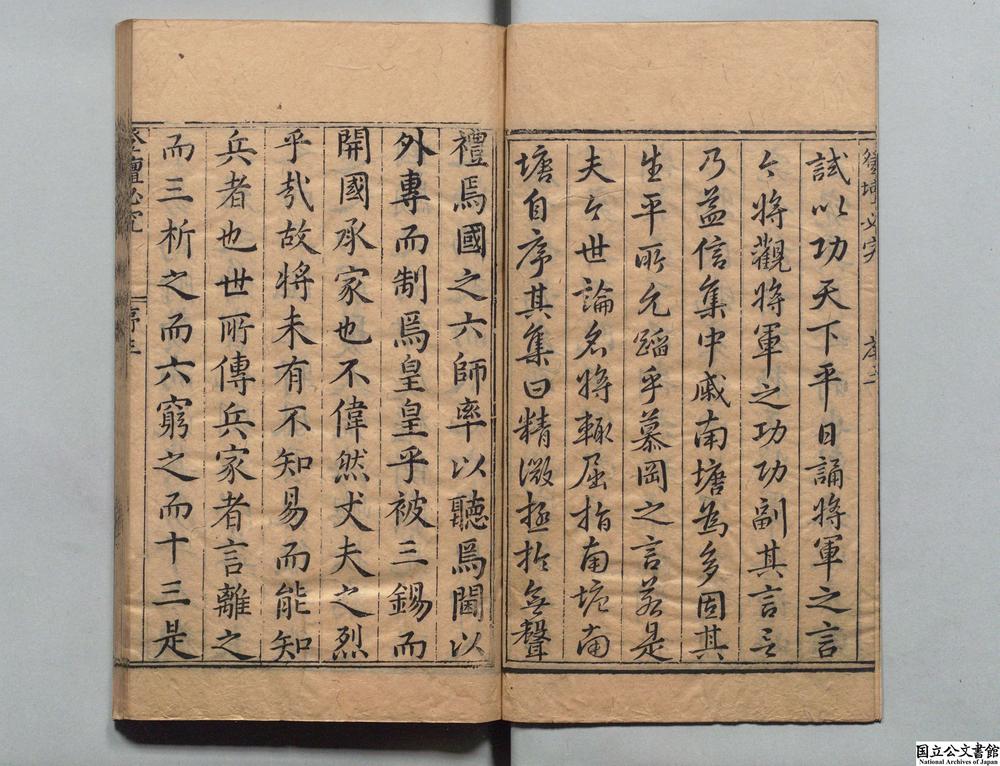 試以功天下平日誦將軍之言
今將觀將軍之功功副其言言
乃益信集中戚南塘為多固其
生平所允蹈乎慕岡之言若是
夫今世論名將輒屈指南塘南
塘自序其集曰精微極於無聲
禮焉國之六師率以聽焉閫以
外專而制焉皇皇乎被三錫而
開國承家也不偉然丈夫之烈
乎哉故將未有不知易而能知
兵者也世所傳兵家者言離之
而三析之而六窮之而十三是
登壇必究
序
国立公文書館
National Archives of Japan